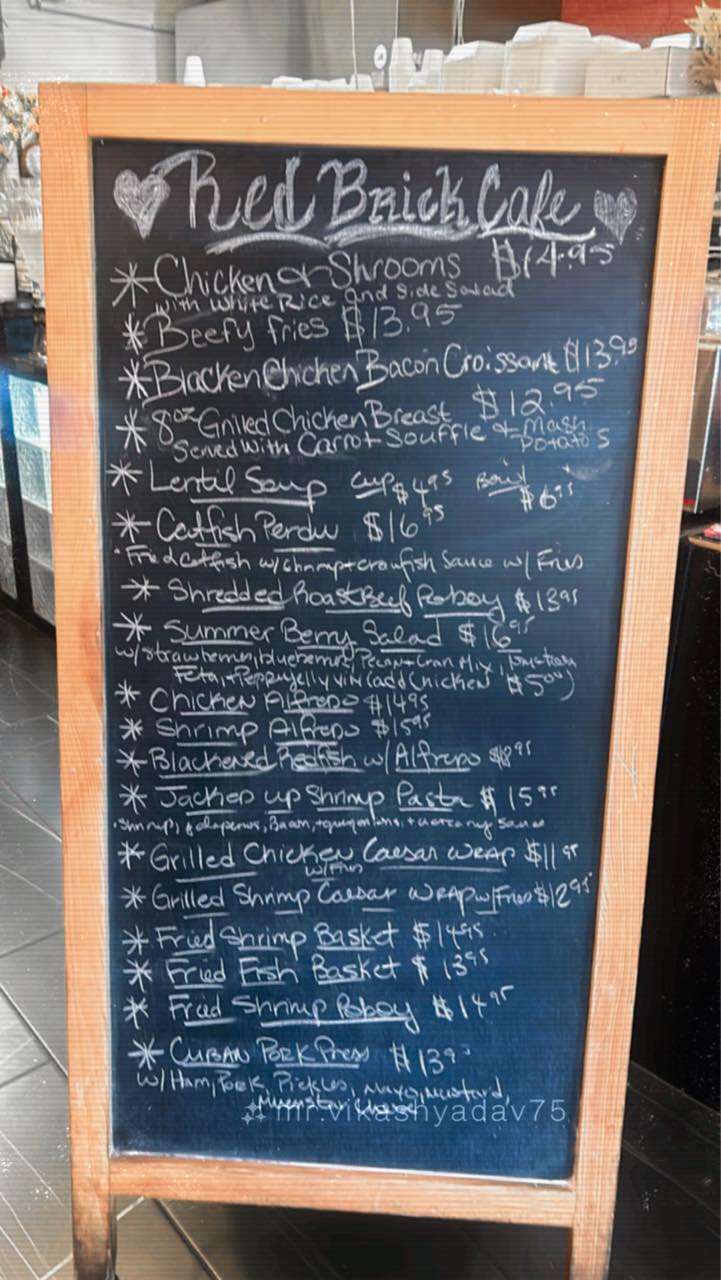 Red Brick Cafe
* Chicken & Shrooms $14.95
with White Rice and Side Salad
* Beefy fries $13.95
* Blacken Chicken Bacon Croissant $13.95
* 8oz Grilled Chicken Breast $12.95
Served with Carrot Souffle & Mash Potato's
* Lentil Soup Cup $4.95 Bowl $6.95
* Catfish Perdu $16.95
Fried Catfish w/ shrimp + crawfish Sauce w/ Fries
* Shredded Roast Beef Poboy $13.95
* Summer Berry Salad $16.95
w/ strawberries, blueberries, Pecan + Cran Mix,
Feta, + Pepper jelly vin (add Chicken $5.00)
* Chicken Alfredo $14.95
* Shrimp Alfredo $15.95
* Blackened Redfish w/ Alfredo
* Jacked up Shrimp Pasta $15.95
Shrimp, jalapenos, Bacon, + sauce
* Grilled Chicken Caesar wrap $11.95
w/ Fries
* Grilled Shrimp Caesar wrap w/ Fries $12.95
* Fried Shrimp Basket $14.95
* Fried Fish Basket $13.95
* Fried Shrimp Poboy $14.95
* Cuban Pork Press $13.95
w/ Ham, Pork, Pickles, mayo, mustard,
Muenster cheese
mr.vikashyadav75